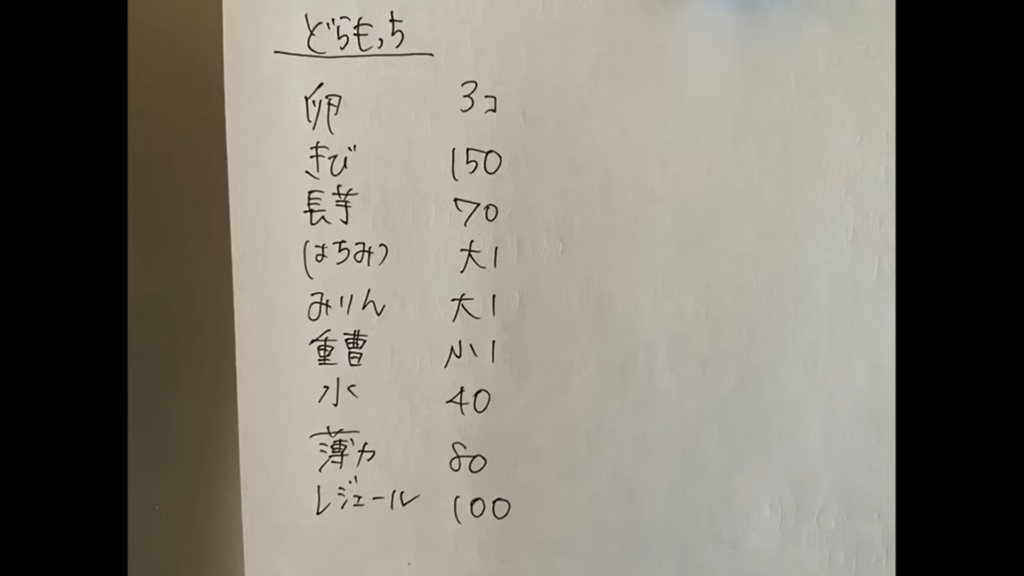 どらもっち
卵 3コ
きび 150
長芋 70
はちみつ 大1
みりん 大1
重曹 小1
水 40
薄力 80
レジェール 100